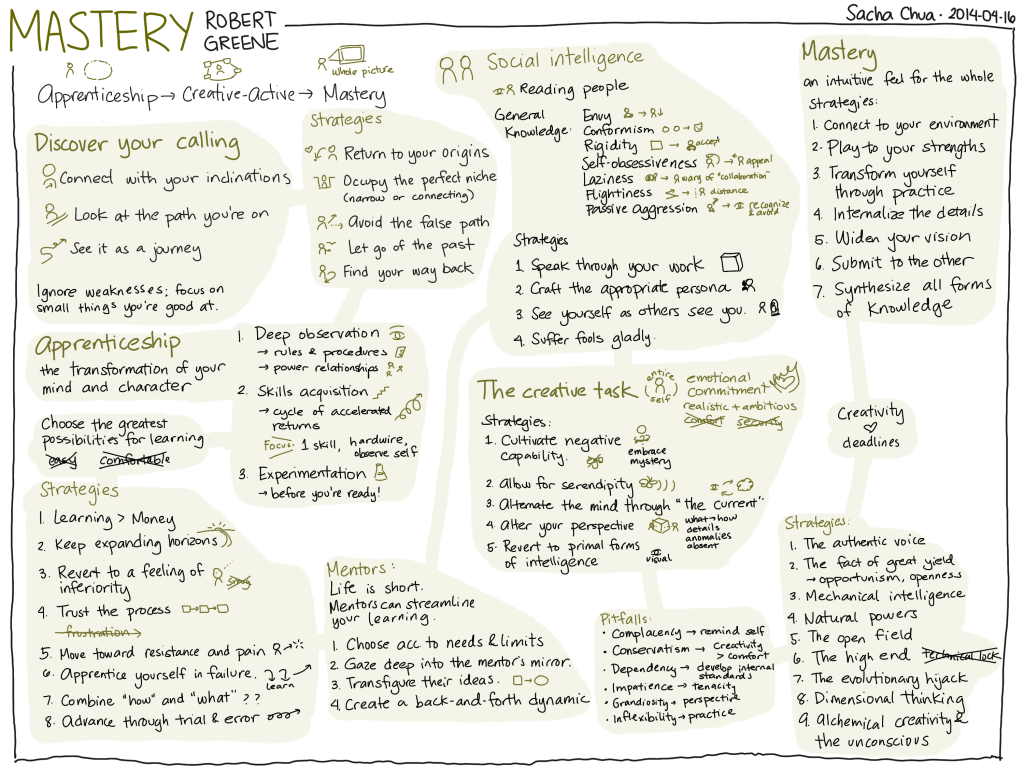 MASTERY
ROBERT
GREENE
Sacha Chua · 2014-09-16
whole picture
Apprenticeship → Creative-Active → Mastery
Discover your calling
Connect with your inclinations
Look at the path you're on
See it as a journey
Ignore weaknesses; focus on
small things you're good at.
Strategies
Return to your origins
Occupy the perfect niche
(narrow or connecting)
Avoid the false path
Let go of the past
Find your way back
Apprenticeship
the transformation of your
mind and character
Choose the greatest
possibilities for learning
easy comfortable
1. Deep observation
→ rules & procedures
→ power relationships
2. Skills acquisition
→ cycle of accelerated
returns
Focus: 1 skill, hardwire,
observe self
3. Experimentation
→ before you're ready!
Strategies
1. Learning > Money
2. Keep expanding horizons
3. Revert to a feeling of
inferiority
smug
4. Trust the process
frustration →
5. Move toward resistance and pain
6. Apprentice yourself in failure.
learn
7. Combine "how" and "what" ??
8. Advance through trial & error
Mentors:
Life is short.
Mentors can streamline
your learning.
1. Choose acc to needs & limits
2. Gaze deep into the mentor's mirror.
3. Transfigure their ideas.
4. Create a back-and-forth dynamic
Social intelligence
Reading people
General
Knowledge:
Envy
Conformism
Rigidity → accept
Self-obsessiveness → appeal
Laziness → wary of "collaboration"
Flightiness → distance
Passive Aggression → recognize
& avoid
Strategies
1. Speak through your work
2. Craft the appropriate persona
3. See yourself as others see you.
4. Suffer fools gladly.
The creative task
entire
self
emotional
commitment
realistic + ambitious
comfort security
Strategies:
1. Cultivate negative
capability.
embrace
mystery
2. Allow for serendipity
3. Alternate the mind through "the current"
4. Alter your perspective
what → how
details
anomalies
absent
5. Revert to primal forms
of intelligence
visual
Pitfalls:
• Complacency → remind self
• Conservatism → Creativity
> comfort
• Dependency → develop internal
standards
• Impatience → tenacity
• Grandiosity → perspective
• Inflexibility → practice
Mastery
an intuitive feel for the whole
Strategies:
1. Connect to your environment
2. Play to your strengths
3. Transform yourself
through practice
4. Internalize the details
5. Widen your vision
6. Submit to the other
7. Synthesize all forms
of Knowledge
Creativity
♡
deadlines
Strategies:
1. The authentic voice
2. The fact of great yield
→ opportunism, openness
3. Mechanical intelligence
4. Natural powers
5. The open field
6. The high end technical lock
7. The evolutionary hijack
8. Dimensional thinking
9. Alchemical creativity &
the unconscious